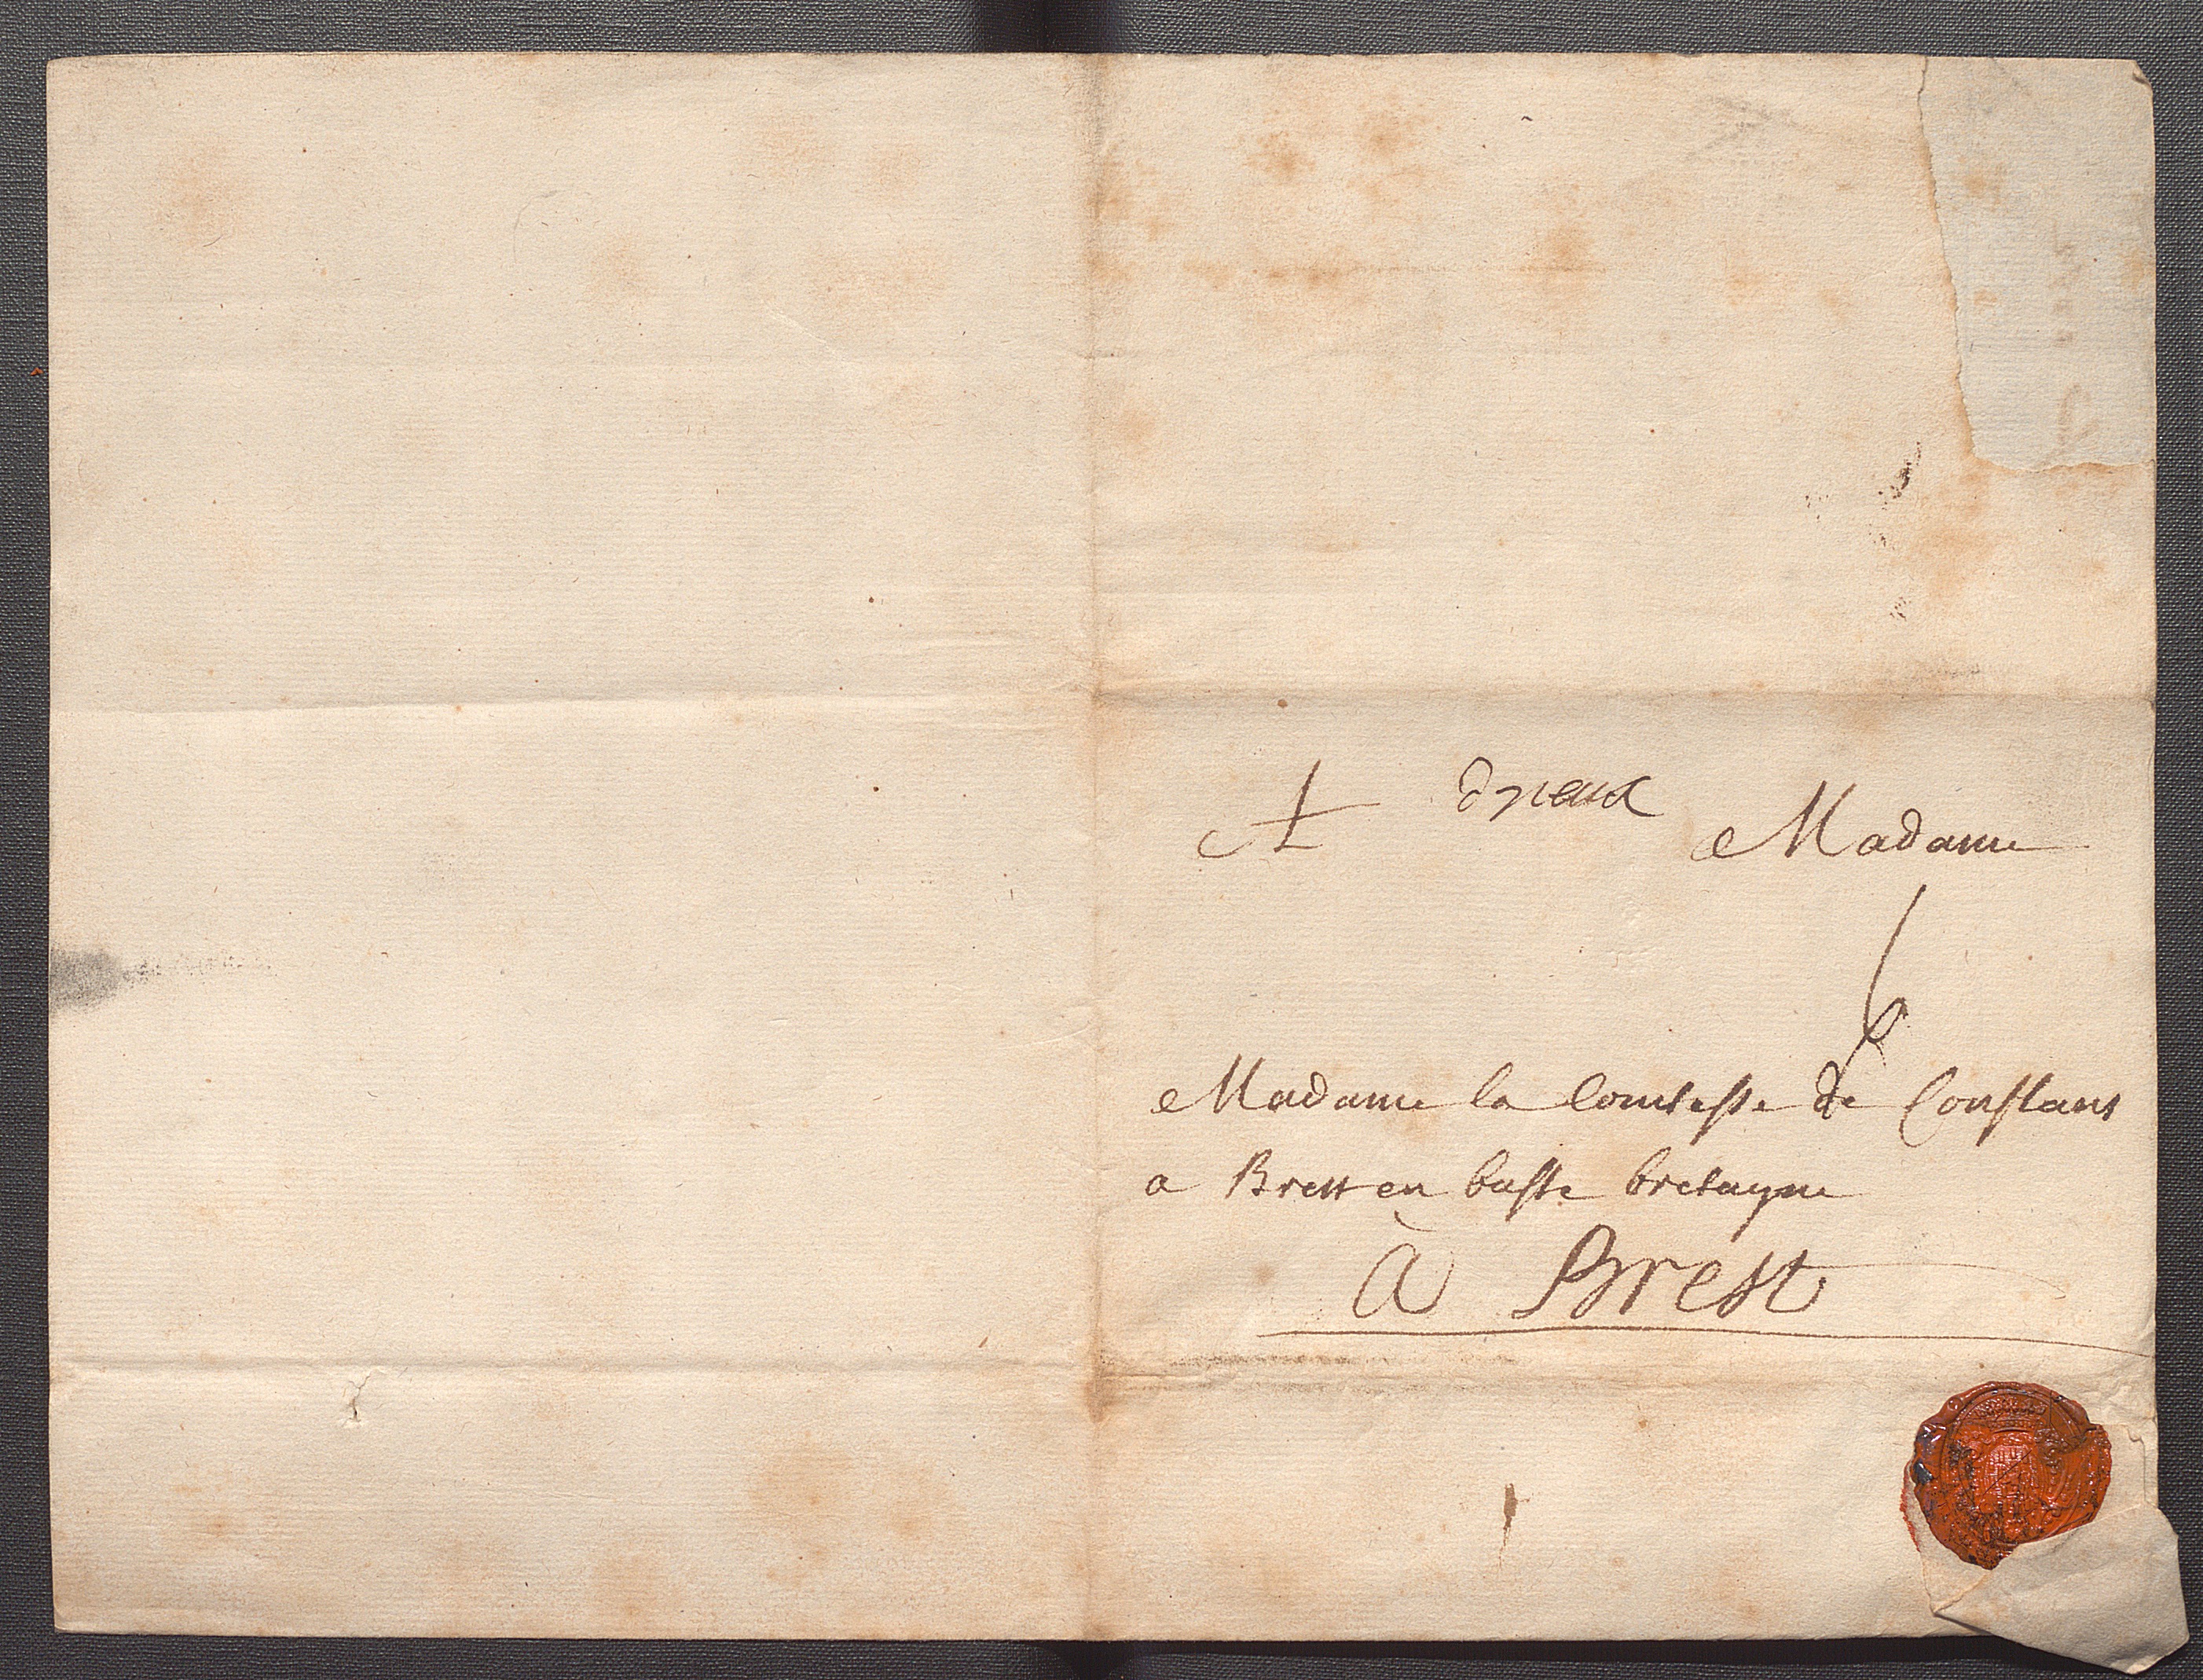 A Madame
6
Madame la Comtesse de Conflans
a Brest en basse bretagne
à Brest